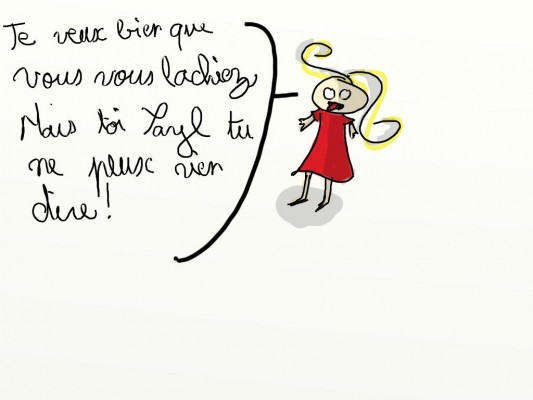 Je veux bien que
vous vous lachiez
Mais toi Taryl tu
ne peux rien
dire!